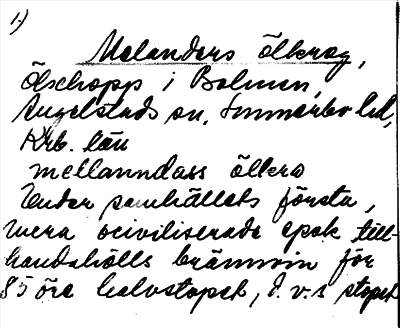 1.)
Melanders ölkrog,
Ölschapp i Bolmen,
Angelstads sn, Sunnerbo hd,
Krb. län
mellanndass ölkro
Under samhällets första,
mera ociviliserade epok till-
handahölls brännvin för
85 öre halvstopet, d.v.s stopet